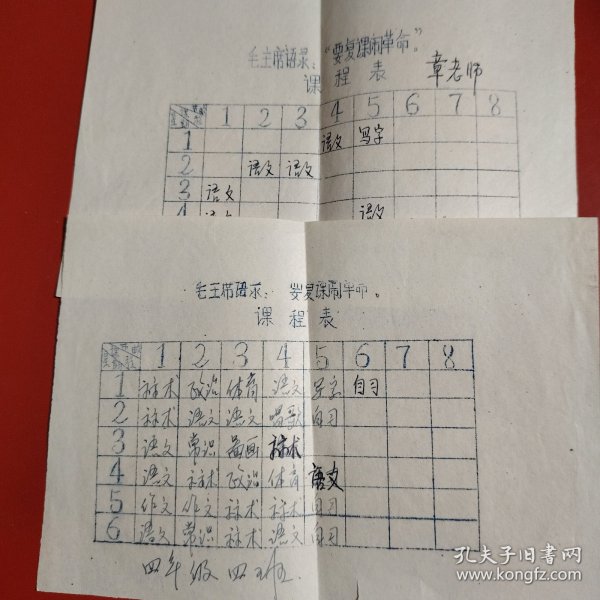 毛主席语录：“要复课闹革命。”
课程表 章老师
1 2 3 4 5 6 7 8
1 语文 写字
2 语文 语文
3 语文
4 语文 语文
毛主席语录： 要复课闹革命。
课程表
1 2 3 4 5 6 7 8
1 祘术 政治 体育 语文 写字 自习
2 祘术 语文 语文 唱歌 自习
3 语文 常识 畐画 祘术
4 语文 祘术 政治 体育 语文
5 作文 作文 祘术 祘术 自习
6 语文 常识 祘术 语文 自习
四年级 四班
孔夫子旧书网
www.kongfz.com